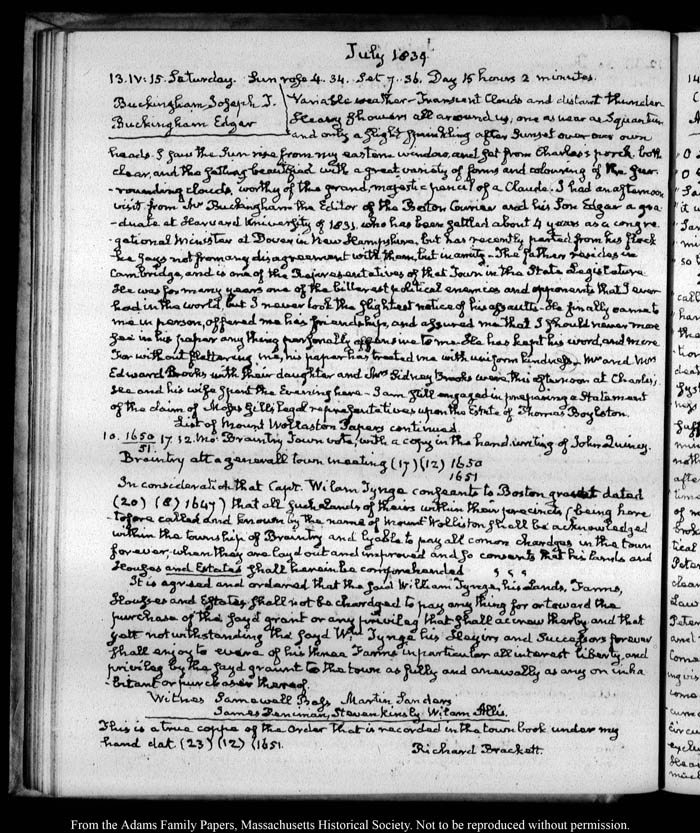 July 1839
13. IV:15. Saturday. Sun rose 4. 34. Set 7. 36. Day 15 hours 2 minutes.
Buckingham Joseph T. Variable weather Transient Clouds and distant thunder
Buckingham Edgar Heavy showers all around us, one as near as Squantum
and only a slight sprinkling after Sunset over our own
heads. I saw the Sun rise from my eastern window, and set from Charles's porch both
clear, and the setting beautified with a great variety of forms and colouring of the sur
-rounding clouds, worthy of the grand, majestic pencil of a Claude. I had an afternoon
visit from Mr Buckingham the Editor of the Boston Courier and his Son Edgar a gra
-duate at Harvard University of 1831. who has been settled about 4 years as a congre
-gational Minister at Dover in New Hampshire, but has recently parted from his flock
he says not from any disagreement with them, but in amity. The father resides in
Cambridge, and is one of the Representatives of that Town in the State Legislature.
He was for many years one of the bitterest political enemies and opponents that I ever
had in the world, but I never took the slightest notice of his assaults. He finally came to
me in person, offered me his friendship, and assured me that I should never more
see in his paper any thing personally offensive to me. He has kept his word, and more
For without flattering me, his paper has treated me with uniform kindness. Mr and Mrs
Edward Brooks with their daughter and Mrs Sidney Brooks were this afternoon at Charles's;
He and his wife spent the Evening here. I am still engaged in preparing a Statement
of the claim of Moses Gill's legal representatives upon the Estate of Thomas Boylston.
List of Mount Wollaston Papers continued.
10. 1650/51. 17. 12. Mo: Braintry Town vote, with a copy in the hand-writing of John Quincy.
Braintry att a generall town meeting (17) (12) 1650
1651
In consideration that Capt. Wilam Tynge consents to Boston graunt dated
(20) (8) 1647) that all such Lands of theirs within their precincts (being here
-tofore called and known by the name of Mount Wolliston shall be acknowledged
within the township of Braintry and lyable to pay all comon chardges in the town
forever, when they are layd out and improved and so consents that his Lands and
Houses and Estates shall herein be comprehended
It is agreed and ordered that the said William Tynge, his Lands, Farms,
Houses and Estates shall not be chardged to pay any thing for or toward the
purchase of the sayd grant or any privileg that shall accrew therby and that
yett notwithstanding the sayd Wm Tynge his Heyirs and Successors forever
shall enjoy to evere of his three Farms in particular all interest liberty, and
privileg by the sayd graunt to the town as fully and anewally as any on inha
-bitant or purchaser thereof.
Witnes Samewell Bass Martin Sanders
James Penniman, Steven Kinsly Wilam Allis.
This is a true coppe of the Order that is recorded in the town book under my
hand dat. (23) (12) (1651. Richard Brackett.
From the Adams Family Papers, Massachusetts Historical Society. Not to be reproduced without permission.